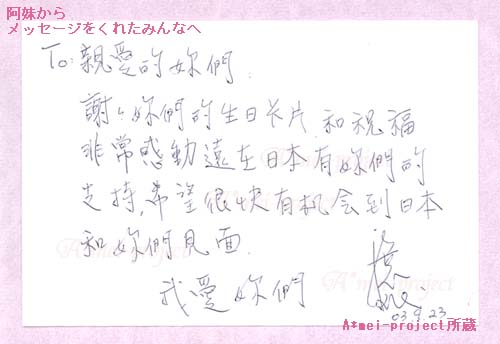 阿妹から
メッセージをくれたみんなへ
To: 親愛的妳們
謝々妳們的生日卡片 和祝福
非常感動遠在日本有妳們的
支持,希望很快有机会到日本
和妳們見面
我愛妳們
03.9.23
A*mei-project
A*mei-project所蔵